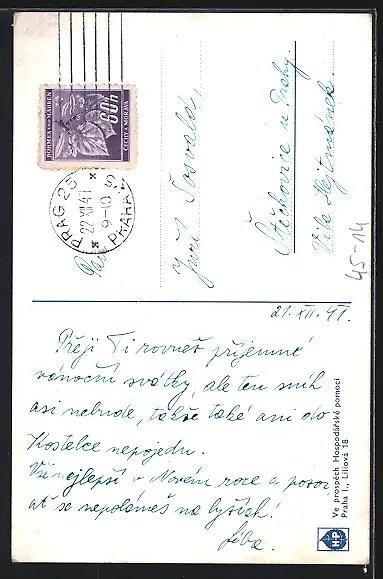 BÖHMEN UND MÄHREN
ČECHY A MORAVA
60h
PRAG 25
22 XII 41
9-10
PRAHA
Pan
Josvald,
Štěchovice u Prahy.
Vila Hejtmánek.
45-14
21. XII. 41.
Přeji Ti rovněž příjemné
vánoční svátky, ale ten sníh
asi nebude, takže také ani do
Kostelce nepojedu.
Vše nejlepší v Novém roce a pozor
ať se nepolámeš na lyžích!
Ve prospěch Hospodářské pomoci
Praha I., Liliová 18
HP